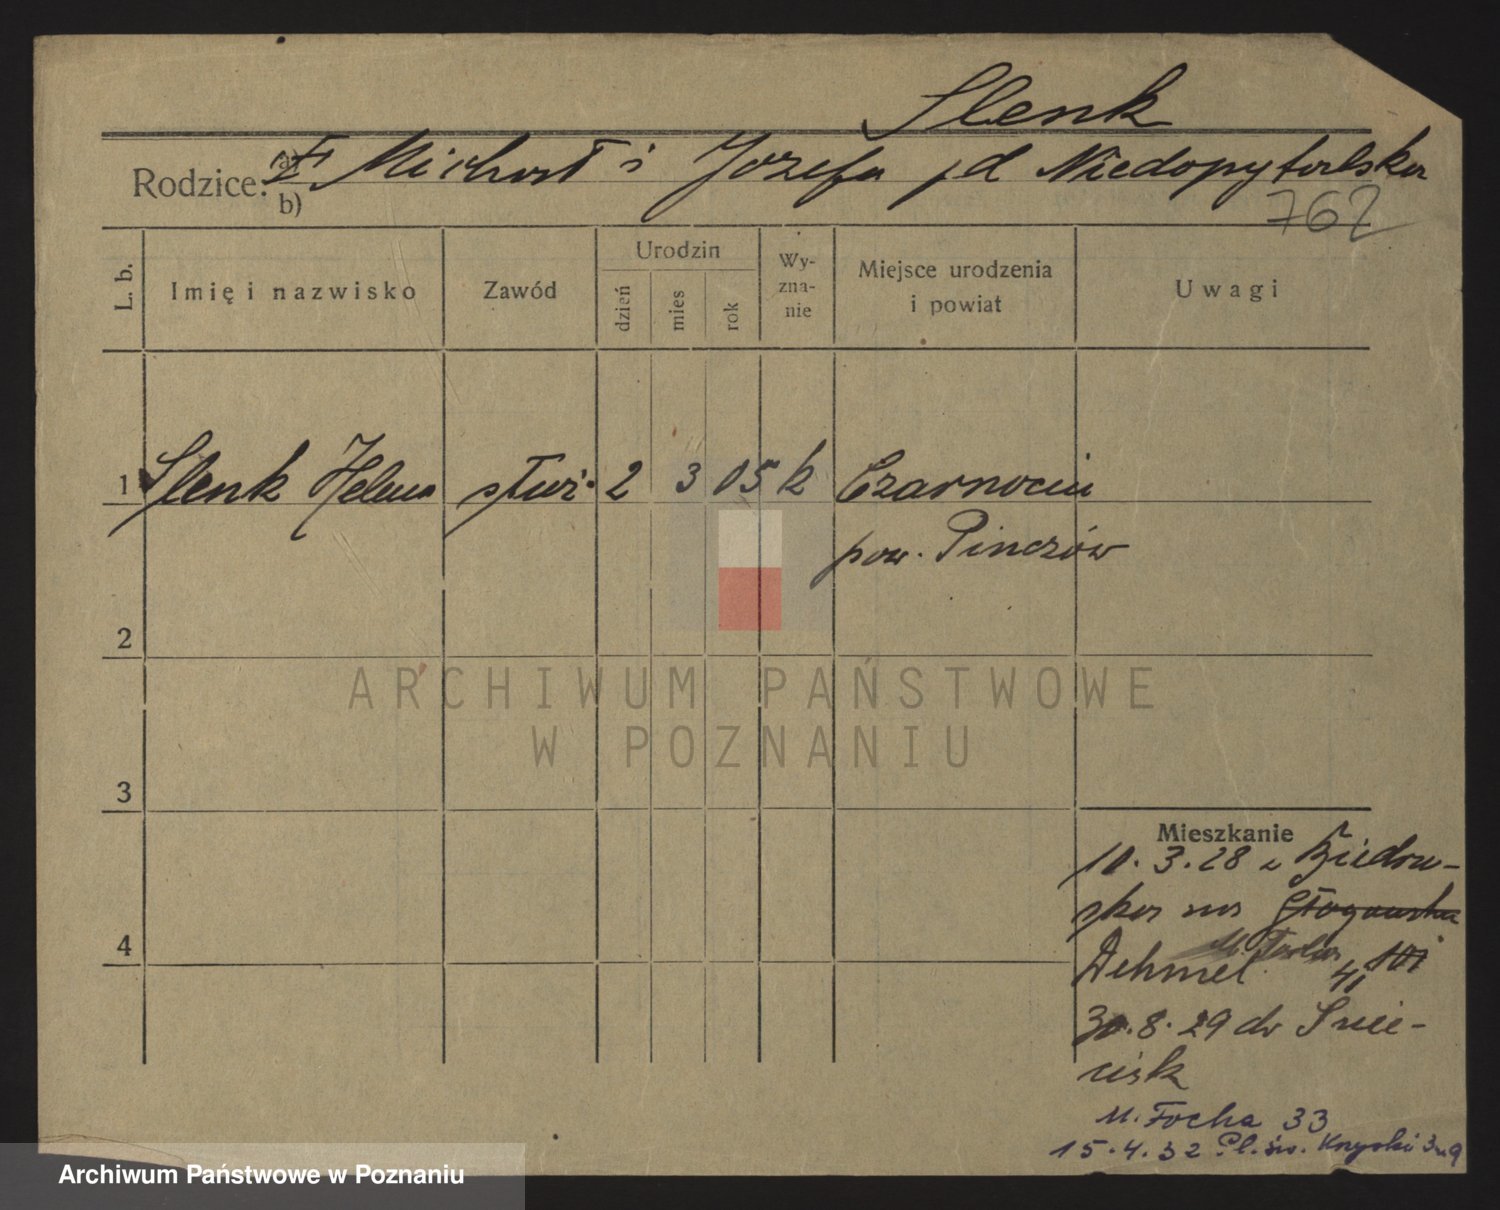 Slenk
Rodzice: a) Michał i Jozefa
b)
762
L. b.
Imię i nazwisko
Zawód
Urodzin
dzień
mies
rok
Wy-
zna-
nie
Miejsce urodzenia
i powiat
Uwagi
1 Slenk Helena służ. 2 3 05 k Czarnocin
pow. Pinczów
2
3
4
ARCHIWUM PAŃSTWOWE
W POZNANIU
Mieszkanie
10.3.28 z Biedru-
ska na Głogowska
Dehmel 41 101
30.8.29 do
M. Focha 33
15.4.32 Pl. św. Krzyski 3
Archiwum Państwowe w Poznaniu